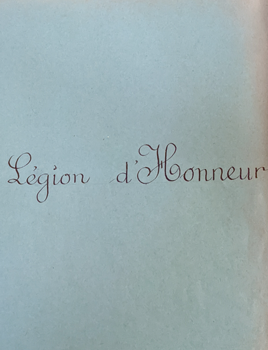 Légion d'Honneur